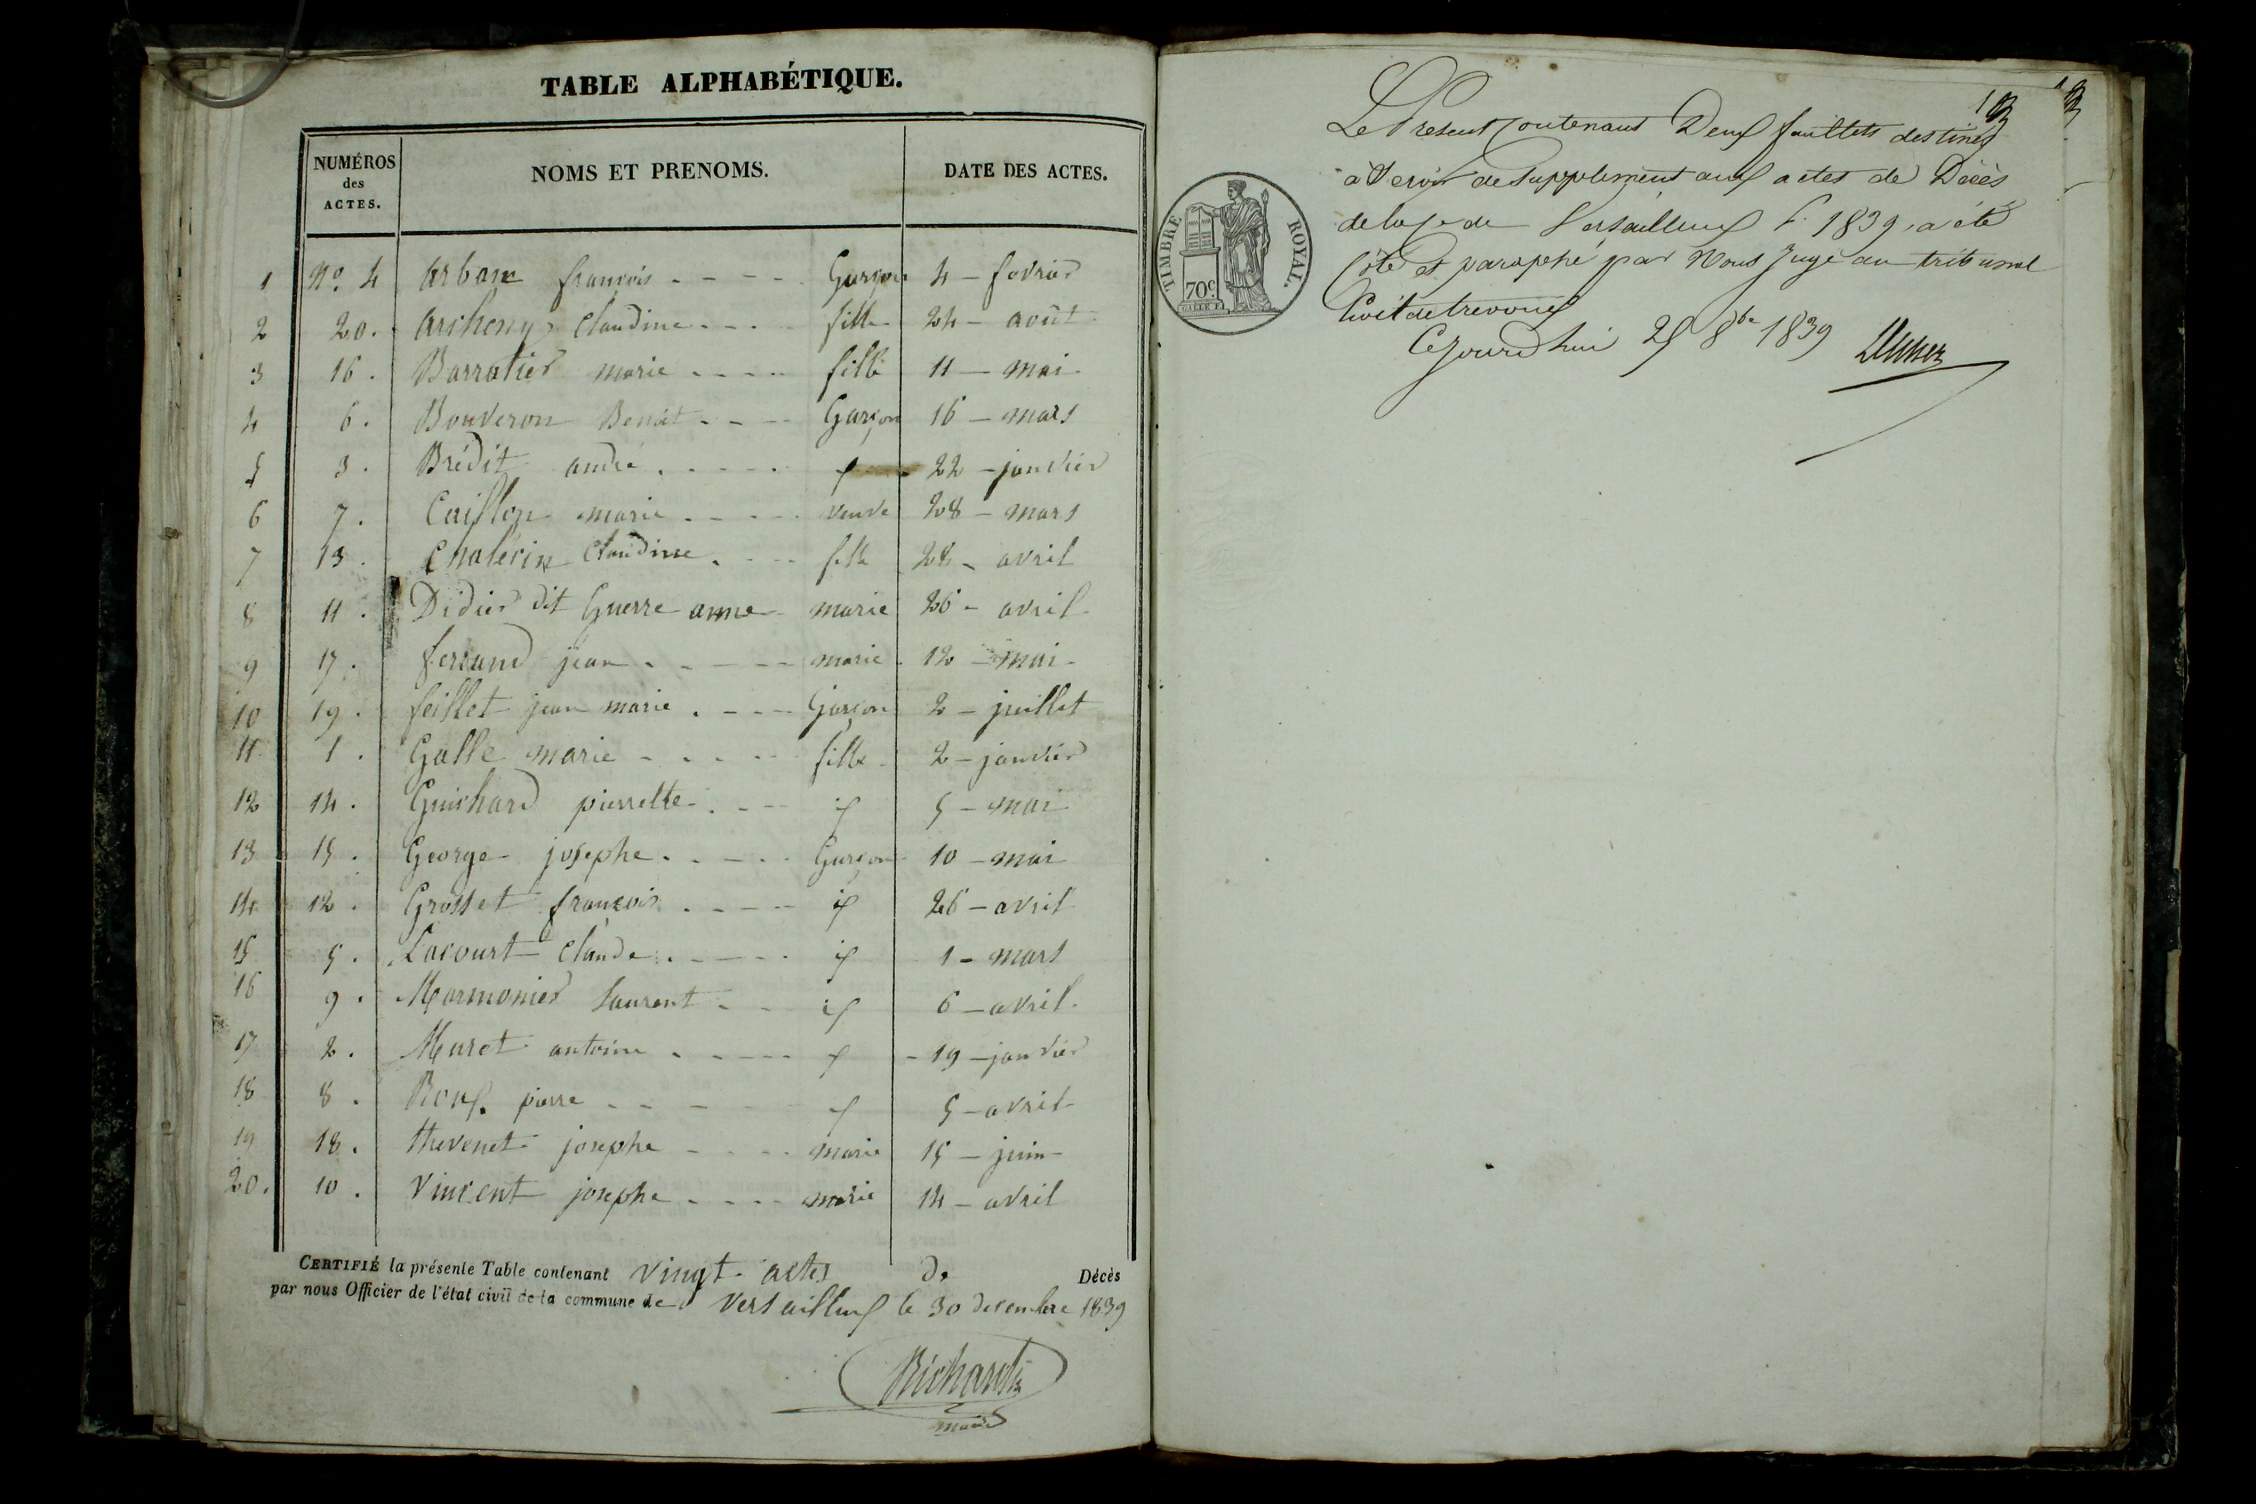 TABLE ALPHABÉTIQUE.
NUMÉROS des ACTES. NOMS ET PRENOMS. DATE DES ACTES.
1 No. 4 arban françois - - - - Garçon 4 - fevrier
2 20. claudine - - - fille 24 - août
3 16. Barratier marie - - - - fille 11 - mai
4 6. Bouveron Benoit - - - Garçon 16 - mars
5 3. Brédit andré - - - - 22 - janvier
6 7. marie - - - - veuve 28 - mars
7 13. Chalérin Claudine - - - fille 28 - avril
8 11. Didier dit Guerre anne marie 26 - avril
9 17. ferrand jean - - - - marie 12 - mai
10 19. feillet jean marie - - - Garçon 2 - juillet
11 1. Galle marie - - - - fille 2 - janvier
12 14. Guichard pierrette - - - 5 - mai
13 15. George josephe - - - - Garçon 10 - mai
14 12. Grosset françois - - - - 26 - avril
15 5. Lacourt claude - - - - 1 - mars
16 9. Marmonier laurent - - 6 - avril
17 2. Muret antoine - - - - 19 - janvier
18 8. Roux pierre - - - - 5 - avril
19 18. thevenet josephe - - - - marie 15 - juin
20. 10. Vincent josephe - - - - marie 14 - avril
CERTIFIÉ la présente Table contenant vingt actes de Décès
par nous Officier de l'état civil de la commune de Versailleux le 30 decembre 1839
Richard
maire
Le Present Contenant Deux feuillets destinés
à Servir de Supplement aux actes de Décès
de la Ce de Versailleux 1839, a été
Coté et paraphé par Nous Juge au tribunal
Civil de trevoux
Ce Jourd'hui 25 8bre 1839
TIMBRE ROYAL.
70c.